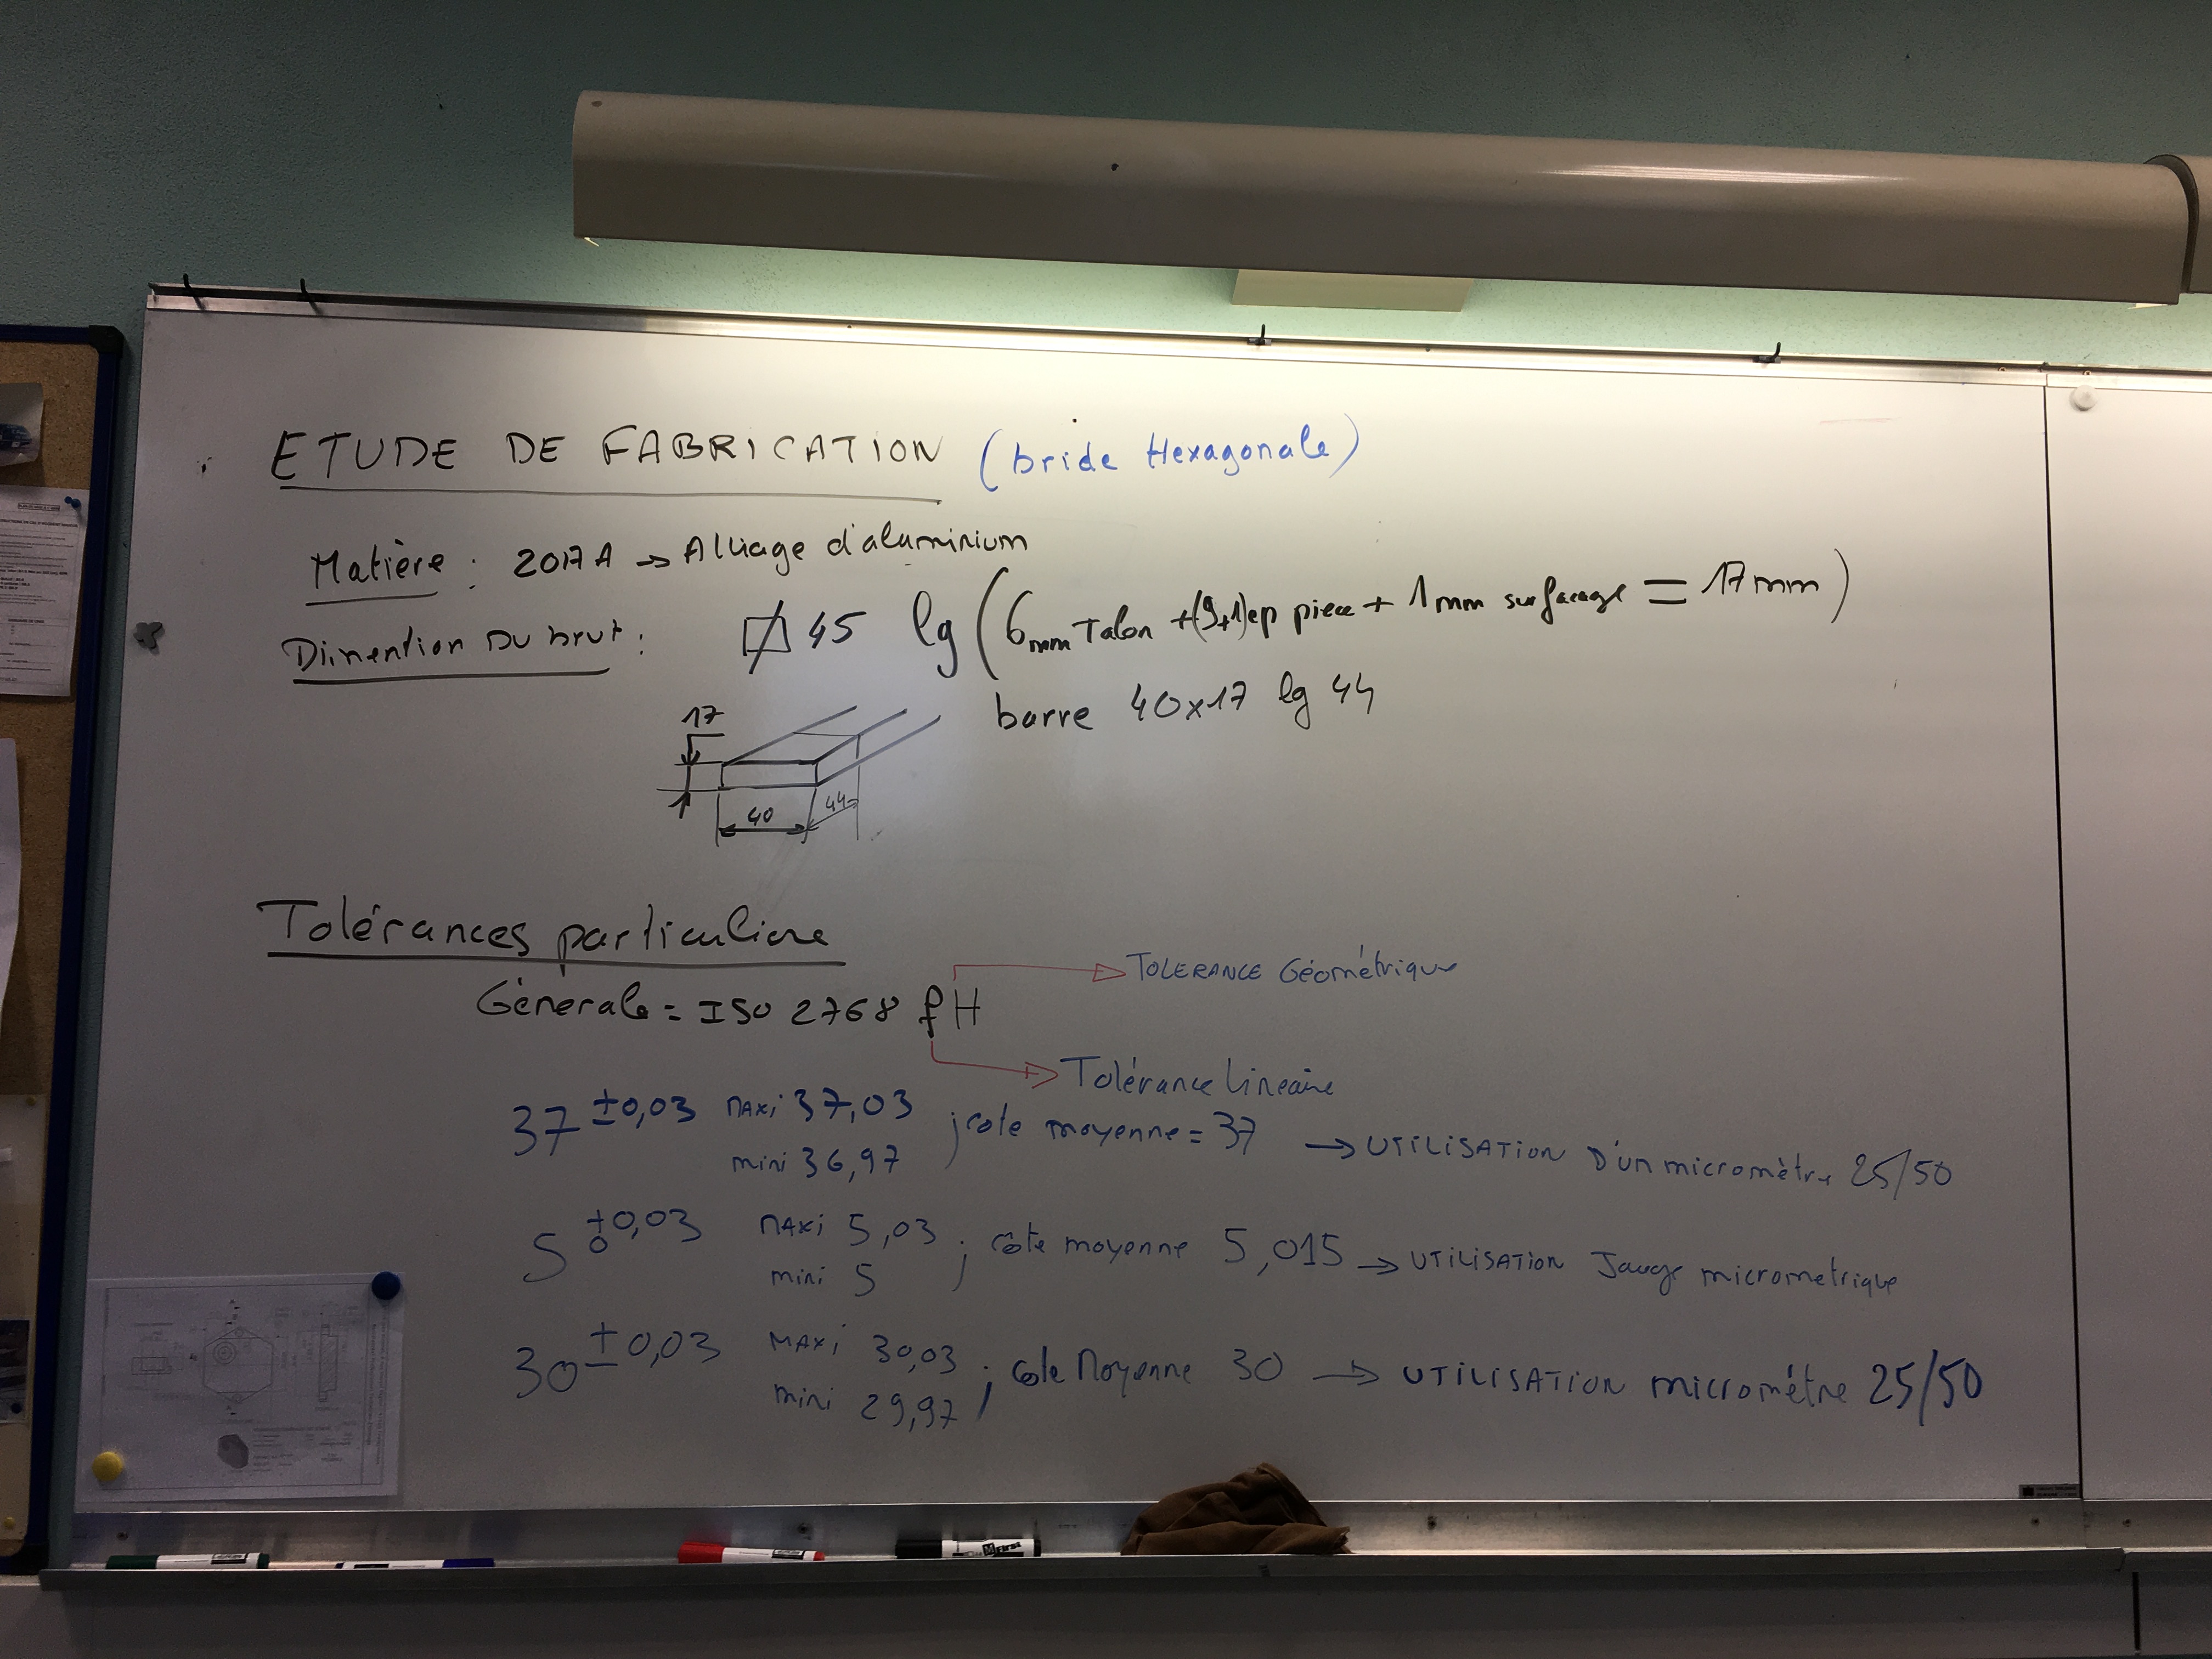 ETUDE DE FABRICATION (bride Hexagonale)
Matière : 2017A → Alliage d'aluminium
Dimention Du brut : 45 lg (6mm Talon +(9+1)ep piece + 1mm surfaçage = 17mm)
barre 40x17 lg 44
17
40
44
Tolérances particuliere
Générale = ISO 2768 fH
TOLERANCE Géométrique
Tolérance Lineaire
37 ±0,03 MAXi 37,03 ; cote moyenne = 37 → UTiLiSATiON D'un micromètre 25/50
mini 36,97
5 +0,03 MAXi 5,03 ; côte moyenne 5,015 → UTiLiSATiON Jauge micrometrique
0 mini 5
30 ±0,03 MAXi 30,03 ; côte Moyenne 30 → UTiLiSATiON micromètre 25/50
mini 29,97